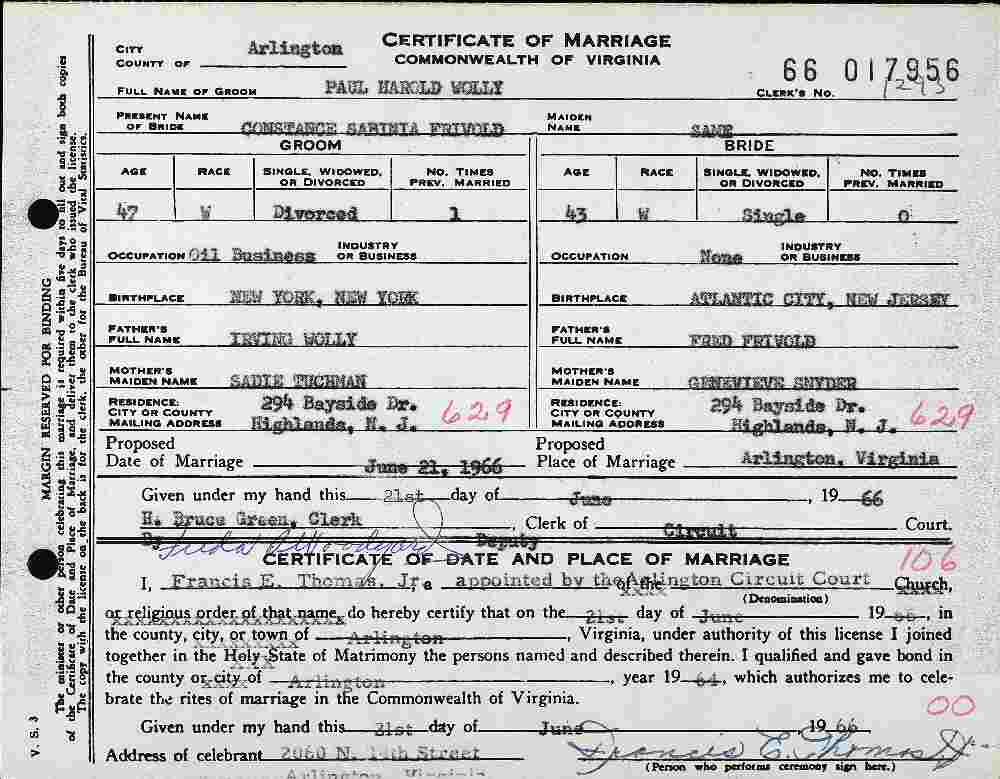 CERTIFICATE OF MARRIAGE
COMMONWEALTH OF VIRGINIA
CITY
COUNTY OF Arlington
66 017956
CLERK'S No. 1293
FULL NAME OF GROOM PAUL HAROLD WOLLY
PRESENT NAME OF BRIDE CONSTANCE SABINIA FRIVOLD MAIDEN NAME SAME
GROOM BRIDE
AGE RACE SINGLE, WIDOWED, OR DIVORCED NO. TIMES PREV. MARRIED AGE RACE SINGLE, WIDOWED, OR DIVORCED NO. TIMES PREV. MARRIED
47 W Divorced 1 43 W Single 0
OCCUPATION Oil Business INDUSTRY OR BUSINESS OCCUPATION None INDUSTRY OR BUSINESS
BIRTHPLACE NEW YORK, NEW YORK BIRTHPLACE ATLANTIC CITY, NEW JERSEY
FATHER'S FULL NAME IRVING WOLLY FATHER'S FULL NAME FRED FRIVOLD
MOTHER'S MAIDEN NAME SADIE TUCHMAN MOTHER'S MAIDEN NAME GENEVIEVE SNYDER
RESIDENCE: CITY OR COUNTY MAILING ADDRESS 294 Bayside Dr. Highlands, N. J. 629 RESIDENCE: CITY OR COUNTY MAILING ADDRESS 294 Bayside Dr. Highlands, N. J. 629
Proposed Date of Marriage June 21, 1966 Proposed Place of Marriage Arlington, Virginia
Given under my hand this 21st day of June, 19 66
H. Bruce Green, Clerk, Clerk of Circuit Court.
By Deputy
CERTIFICATE OF DATE AND PLACE OF MARRIAGE 106
I, Francis E. Thomas, Jr., appointed by the Arlington Circuit Court of the Church,
(Denomination)
or religious order of that name, do hereby certify that on the 21st day of June 19 66, in
the county, city, or town of Arlington, Virginia, under authority of this license I joined
together in the Holy State of Matrimony the persons named and described therein. I qualified and gave bond in
the county or city of Arlington, year 19 64, which authorizes me to cele-
brate the rites of marriage in the Commonwealth of Virginia.
00
Given under my hand this 21st day of June, 19 66
Address of celebrant 2060 N. 14th Street Francis E. Thomas Jr.
Arlington, Virginia (Person who performs ceremony sign here.)
MARGIN RESERVED FOR BINDING
The minister or other person celebrating this marriage is required within five days to fill out and sign both copies
of the Certificate of Date and Place of Marriage, and deliver them to the clerk who issued the license.
The copy with the license on the back is for the clerk, the other for the Bureau of Vital Statistics.
V. S. 3